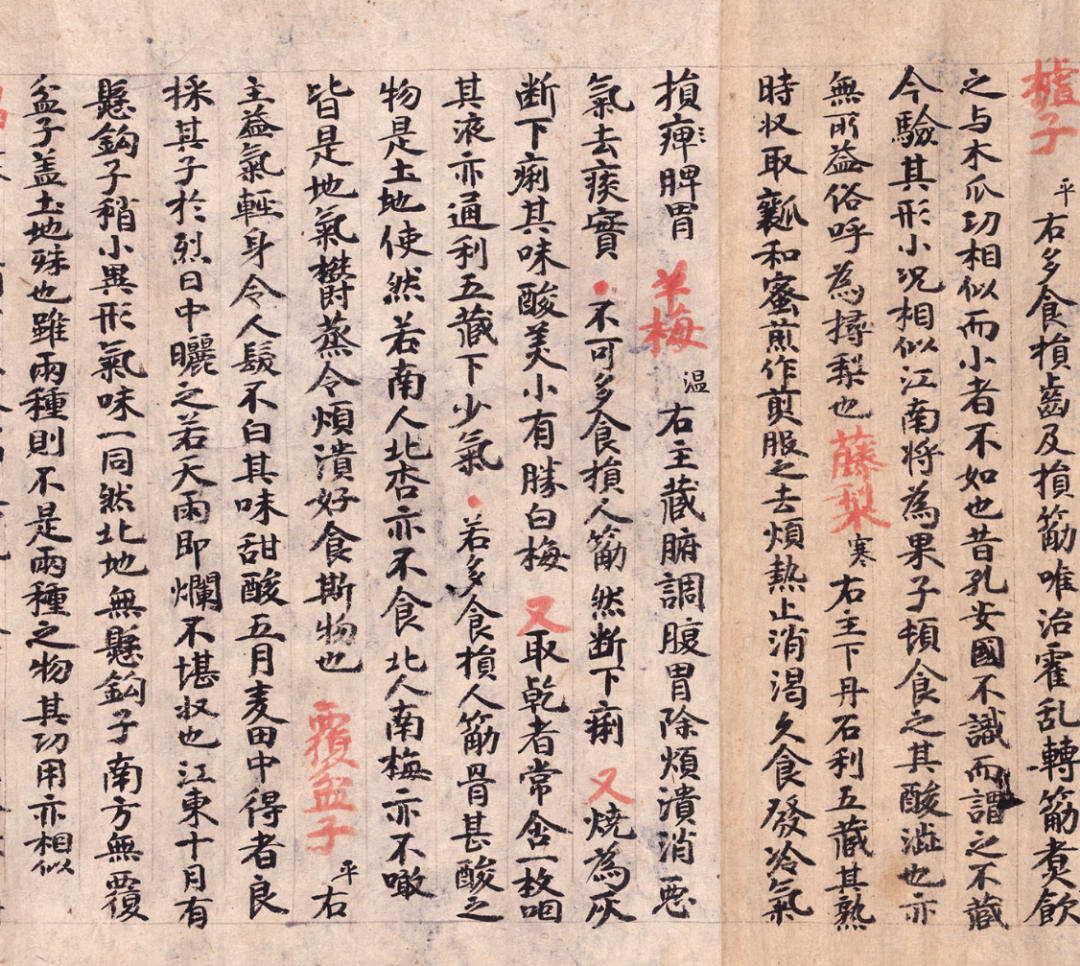 樝子平右多食損齒及損筋唯治霍乱轉筋煮飲
之与木瓜功相似而小者不如也昔孔安國不識而謂之不藏
今驗其形小況相似江南将為果子頓食之其酸澁也亦
無所益俗呼為㩐梨也藤梨寒右主下丹石利五藏其熟
時收取瓤和蜜煎作煎服之去煩熱止消渴久食發冷氣
損痺脾胃羊梅温右主藏腑調腹胃除煩潰消惡
氣去痰實・不可多食損人筋然断下痢又燒為灰
断下痢其味酸美小有勝白梅又取乾者常含一枚咽
其液亦通利五藏下少氣・若多食損人筋骨甚酸之
物是土地使然若南人北杏亦不食北人南梅亦不噉
皆是地氣欝蒸令煩潰好食斯物也覆盆子平右
主益氣輕身令人髮不白其味甜酸五月麦田中得者良
採其子於烈日中曬之若天雨即爛不堪收也江東十月有
懸鈎子稍小異形氣味一同然北地無懸鈎子南方無覆
盆子盖土地殊也雖兩種則不是兩種之物其功用亦相似